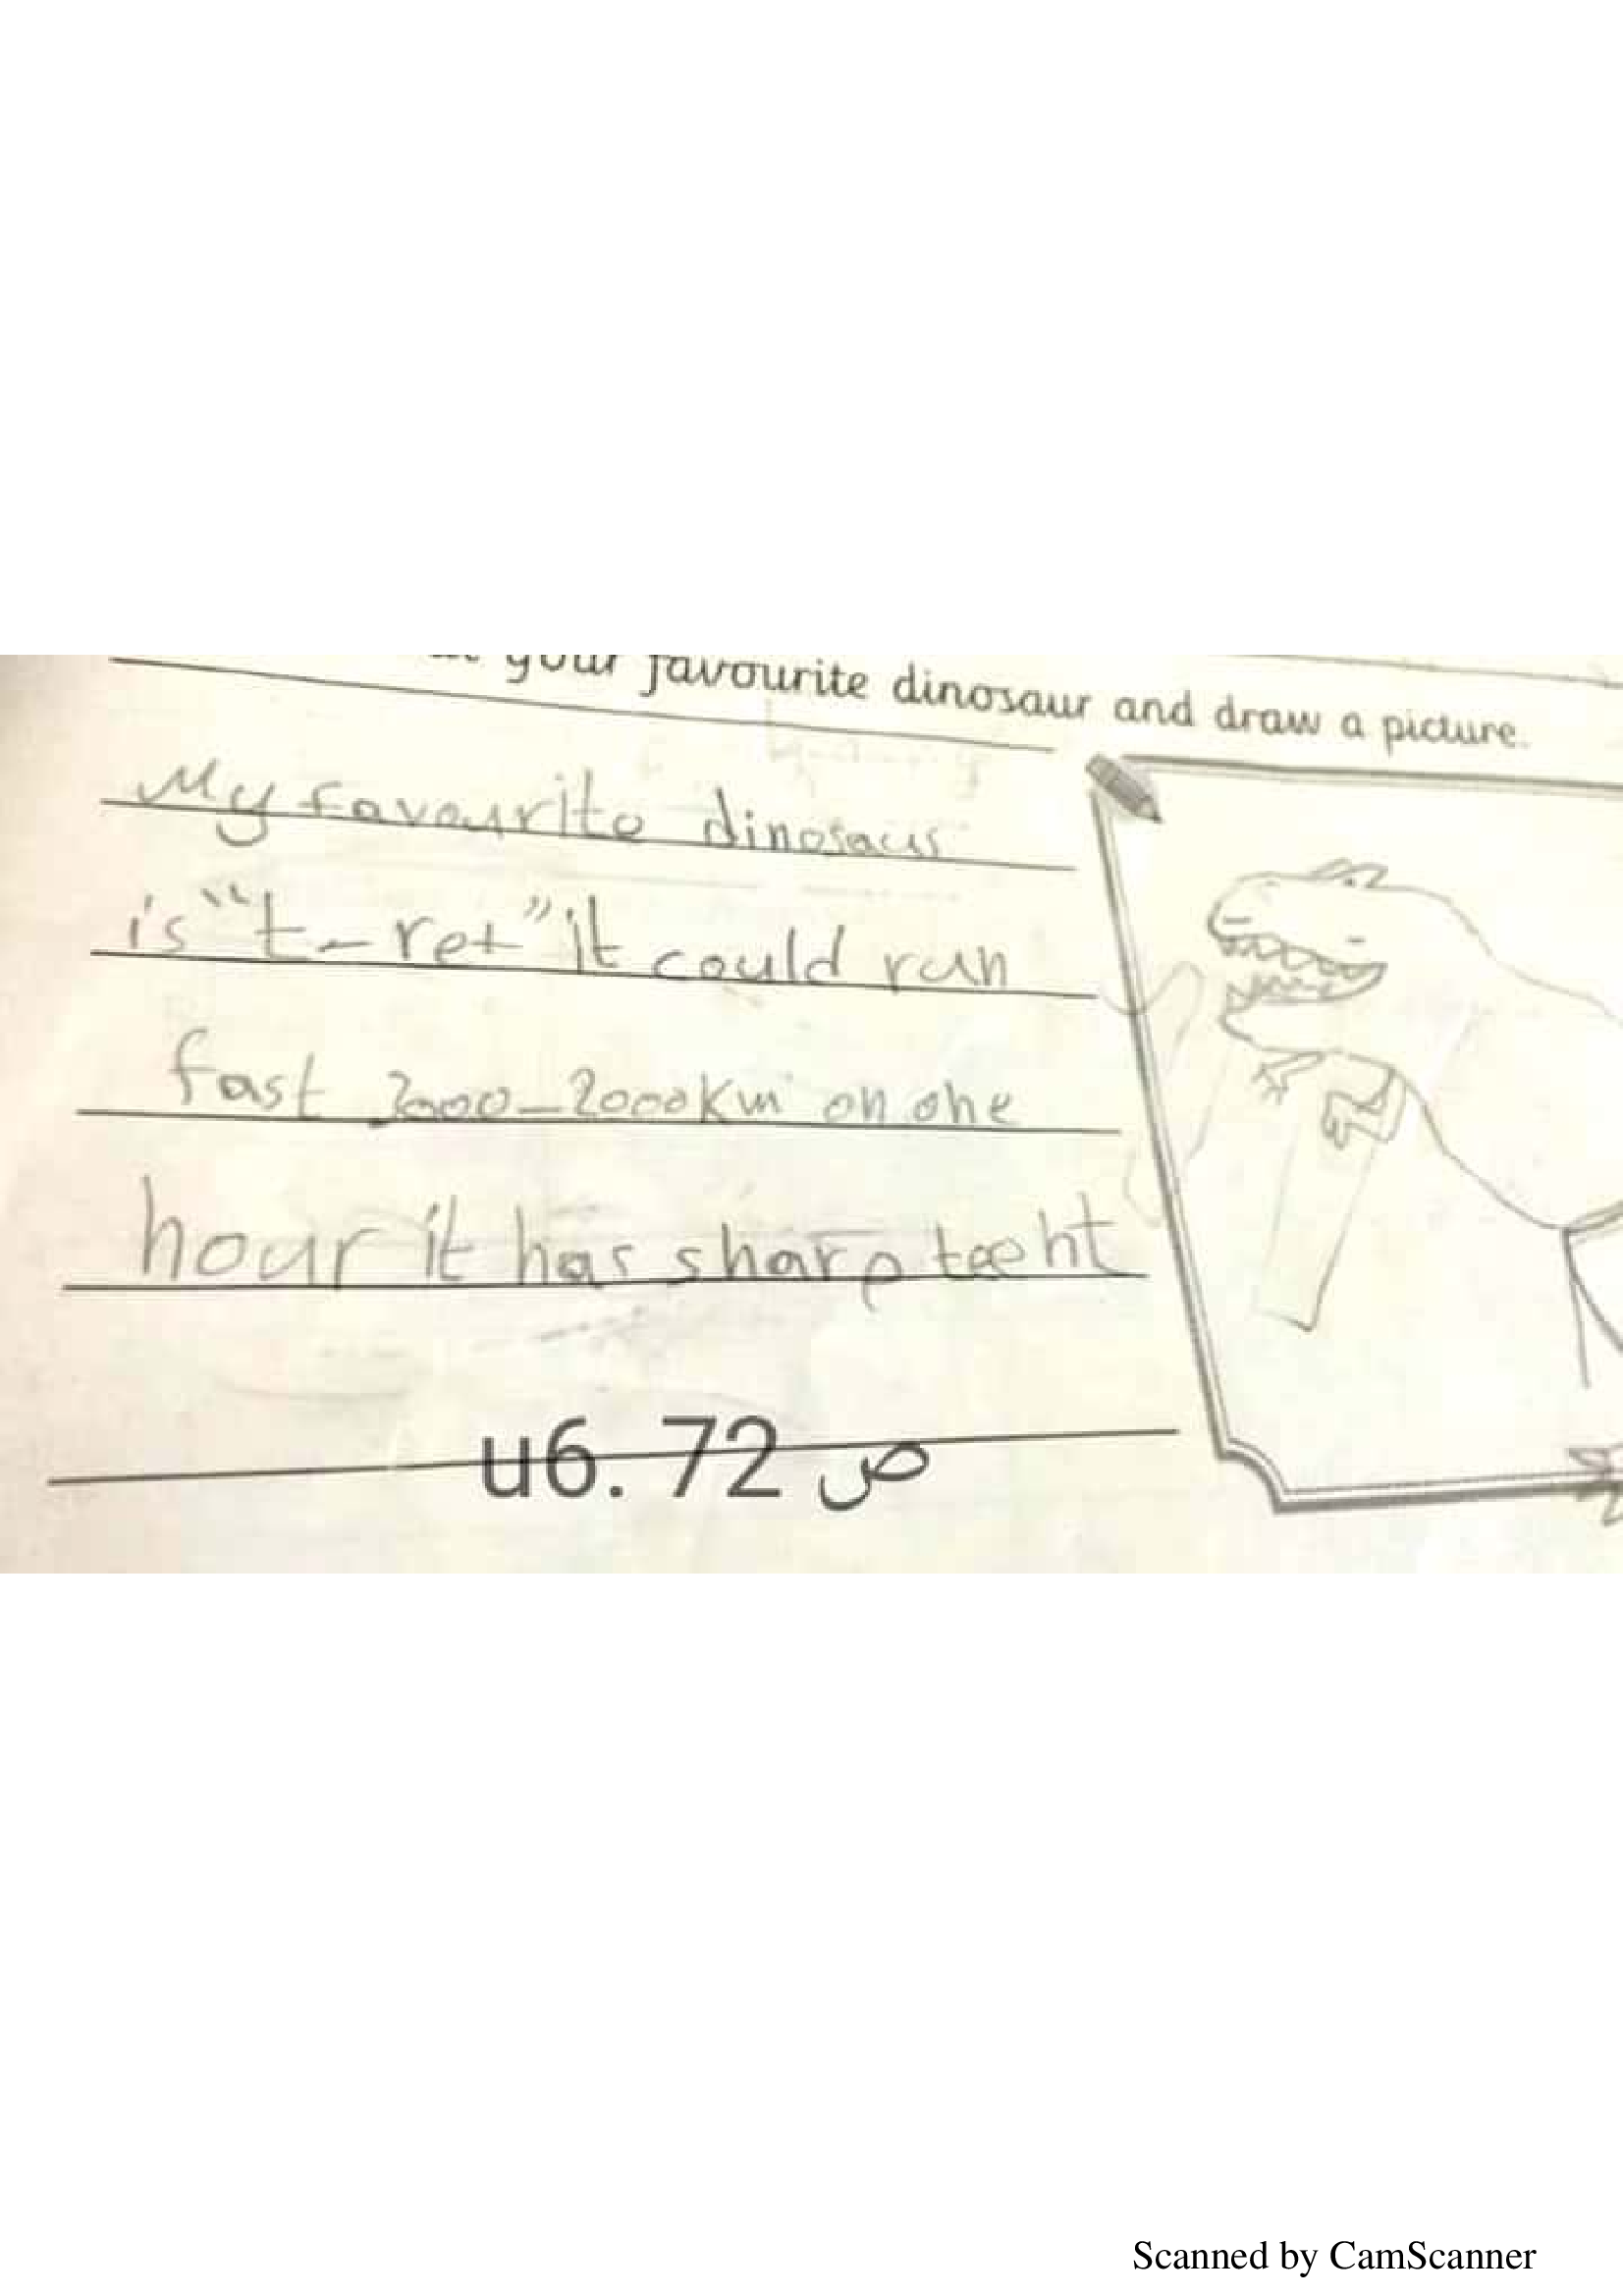 your favourite dinosaur and draw a picture.
My favourite dinosaur
is "t-ret" it could run
fast 3000-2000km on one
hour it has sharp teeht
u6. 72 ص
Scanned by CamScanner